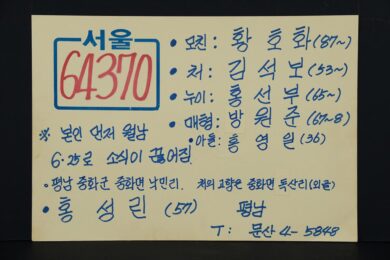 서울
64370
• 모친: 황호화(87~)
• 처: 김석보(53~)
• 누이: 홍선부(65~)
• 매형: 방원준(67~8)
• 아들: 홍영일(36)
※ 본인 먼저 월남
6·25로 소식이 끊어짐
• 평남 중화군 중화면 낙민리. 처의 고향은 중화면 독산리(외골)
• 홍성린(57) 평남
T: 문산 4-5848